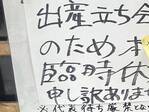 出産立ち会
のため本
臨時休
申し訳ありませ
※代表待ち